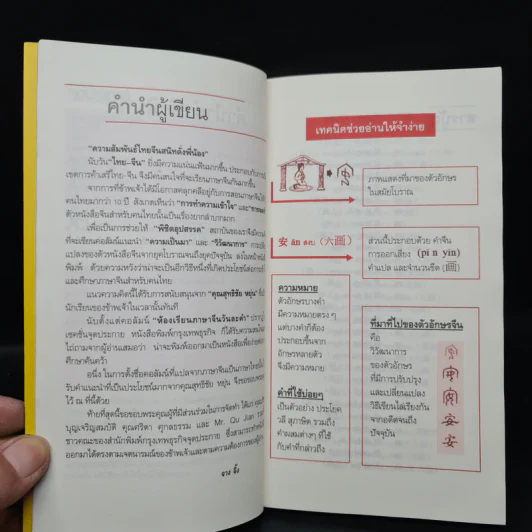 คำนำผู้เขียน
"ความสัมพันธ์ไทยจีนสนิทดั่งพี่น้อง"
นับวัน "ไทย-จีน" ยิ่งมีความแน่นแฟ้นมากขึ้น ประกอบกับการเปิด
เขตการค้าเสรีไทย-จีน จึงมีคนสนใจที่จะเรียนภาษาจีนกันมากขึ้น
จากการที่ข้าพเจ้าได้มีโอกาสคลุกคลีอยู่กับการสอนภาษาจีนให้
คนไทยมากว่า 10 ปี สังเกตเห็นว่า "การทำความเข้าใจ" และ
ตัวหนังสือจีนสำหรับคนไทยนั้นเป็นเรื่องยากลำบากมาก
เพื่อเป็นการช่วยให้ "พิชิตอุปสรรค" สถาบันของเราจึงมี
ที่จะเขียนคอลัมน์แนะนำ "ความเป็นมา" และ "วิวัฒนาการ"
แปลงของตัวหนังสือจีนจากยุคโบราณจนถึงยุคปัจจุบัน ลงในหน้าหนังสือ
พิมพ์ ด้วยความหวังว่าน่าจะเป็นอีกวิธีหนึ่งที่เกิดประโยชน์ต่อการ
และศึกษาภาษาจีนสำหรับคนไทย
แนวความคิดนี้ได้รับการสนับสนุนจาก "คุณสุทธิชัย หยุ่น"
นักเรียนของข้าพเจ้าในเวลานั้น
นับตั้งแต่คอลัมน์ "ห้องเรียนภาษาจีนวันละคำ"
เซคชั่นจุดประกาย หนังสือพิมพ์กรุงเทพธุรกิจ ก็ได้รับความสนใจ
ไถ่ถามจากผู้อ่านเสมอว่า น่าจะพิมพ์ออกมาเป็นหนังสือเพื่อ
ศึกษาค้นคว้า
อนึ่ง ในการตั้งชื่อคอลัมน์ที่แปลจากภาษาจีนเป็นภาษาไทยนั้น
รับคำแนะนำที่เป็นประโยชน์มากจากคุณสุทธิชัย หยุ่น จึงขอขอบพระคุณ
ไว้ ณ ที่นี้ด้วย
ท้ายที่สุดนี้ขอขอบพระคุณผู้ที่มีส่วนร่วมในการจัดทำ ได้แก่
บุญเจริญสมบัติ คุณศริตา ศุกลธรรม และ Mr. Qu Jian
ชาวคณะของสำนักพิมพ์กรุงเทพธุรกิจจุดประกาย ซึ่งสามารถทำ
ออกมาได้ตรงตามเจตนารมณ์ของข้าพเจ้าและตามความต้องการของ
จาง อิ้ง
เทคนิคช่วยอ่านให้จำง่าย
ภาพแสดงที่มาของตัวอักษร
ในสมัยโบราณ
安 ān อัน (六画)
ส่วนนี้ประกอบด้วย คำจีน
การออกเสียง (pi n yin)
คำแปล และจำนวนขีด (画)
ความหมาย
ตัวอักษรบางคำ
มีความหมายตรง ๆ
แต่บางคำก็ต้อง
ประกอบขึ้นจาก
อักษรหลายตัว
จึงมีความหมาย
คำที่ใช้บ่อยๆ
เป็นตัวอย่าง ประโยค
วลี สุภาษิต รวมถึง
คำผสมต่างๆ ที่ใช้
กับคำที่กล่าวถึง
ที่มาที่ไปของตัวอักษรจีน
คือ
วิวัฒนาการ
ของตัวอักษร
ที่มีการปรับปรุง
และเปลี่ยนแปลง
วิธีเขียนไล่เรียงกัน
จากอดีตจนถึง
ปัจจุบัน
安
安